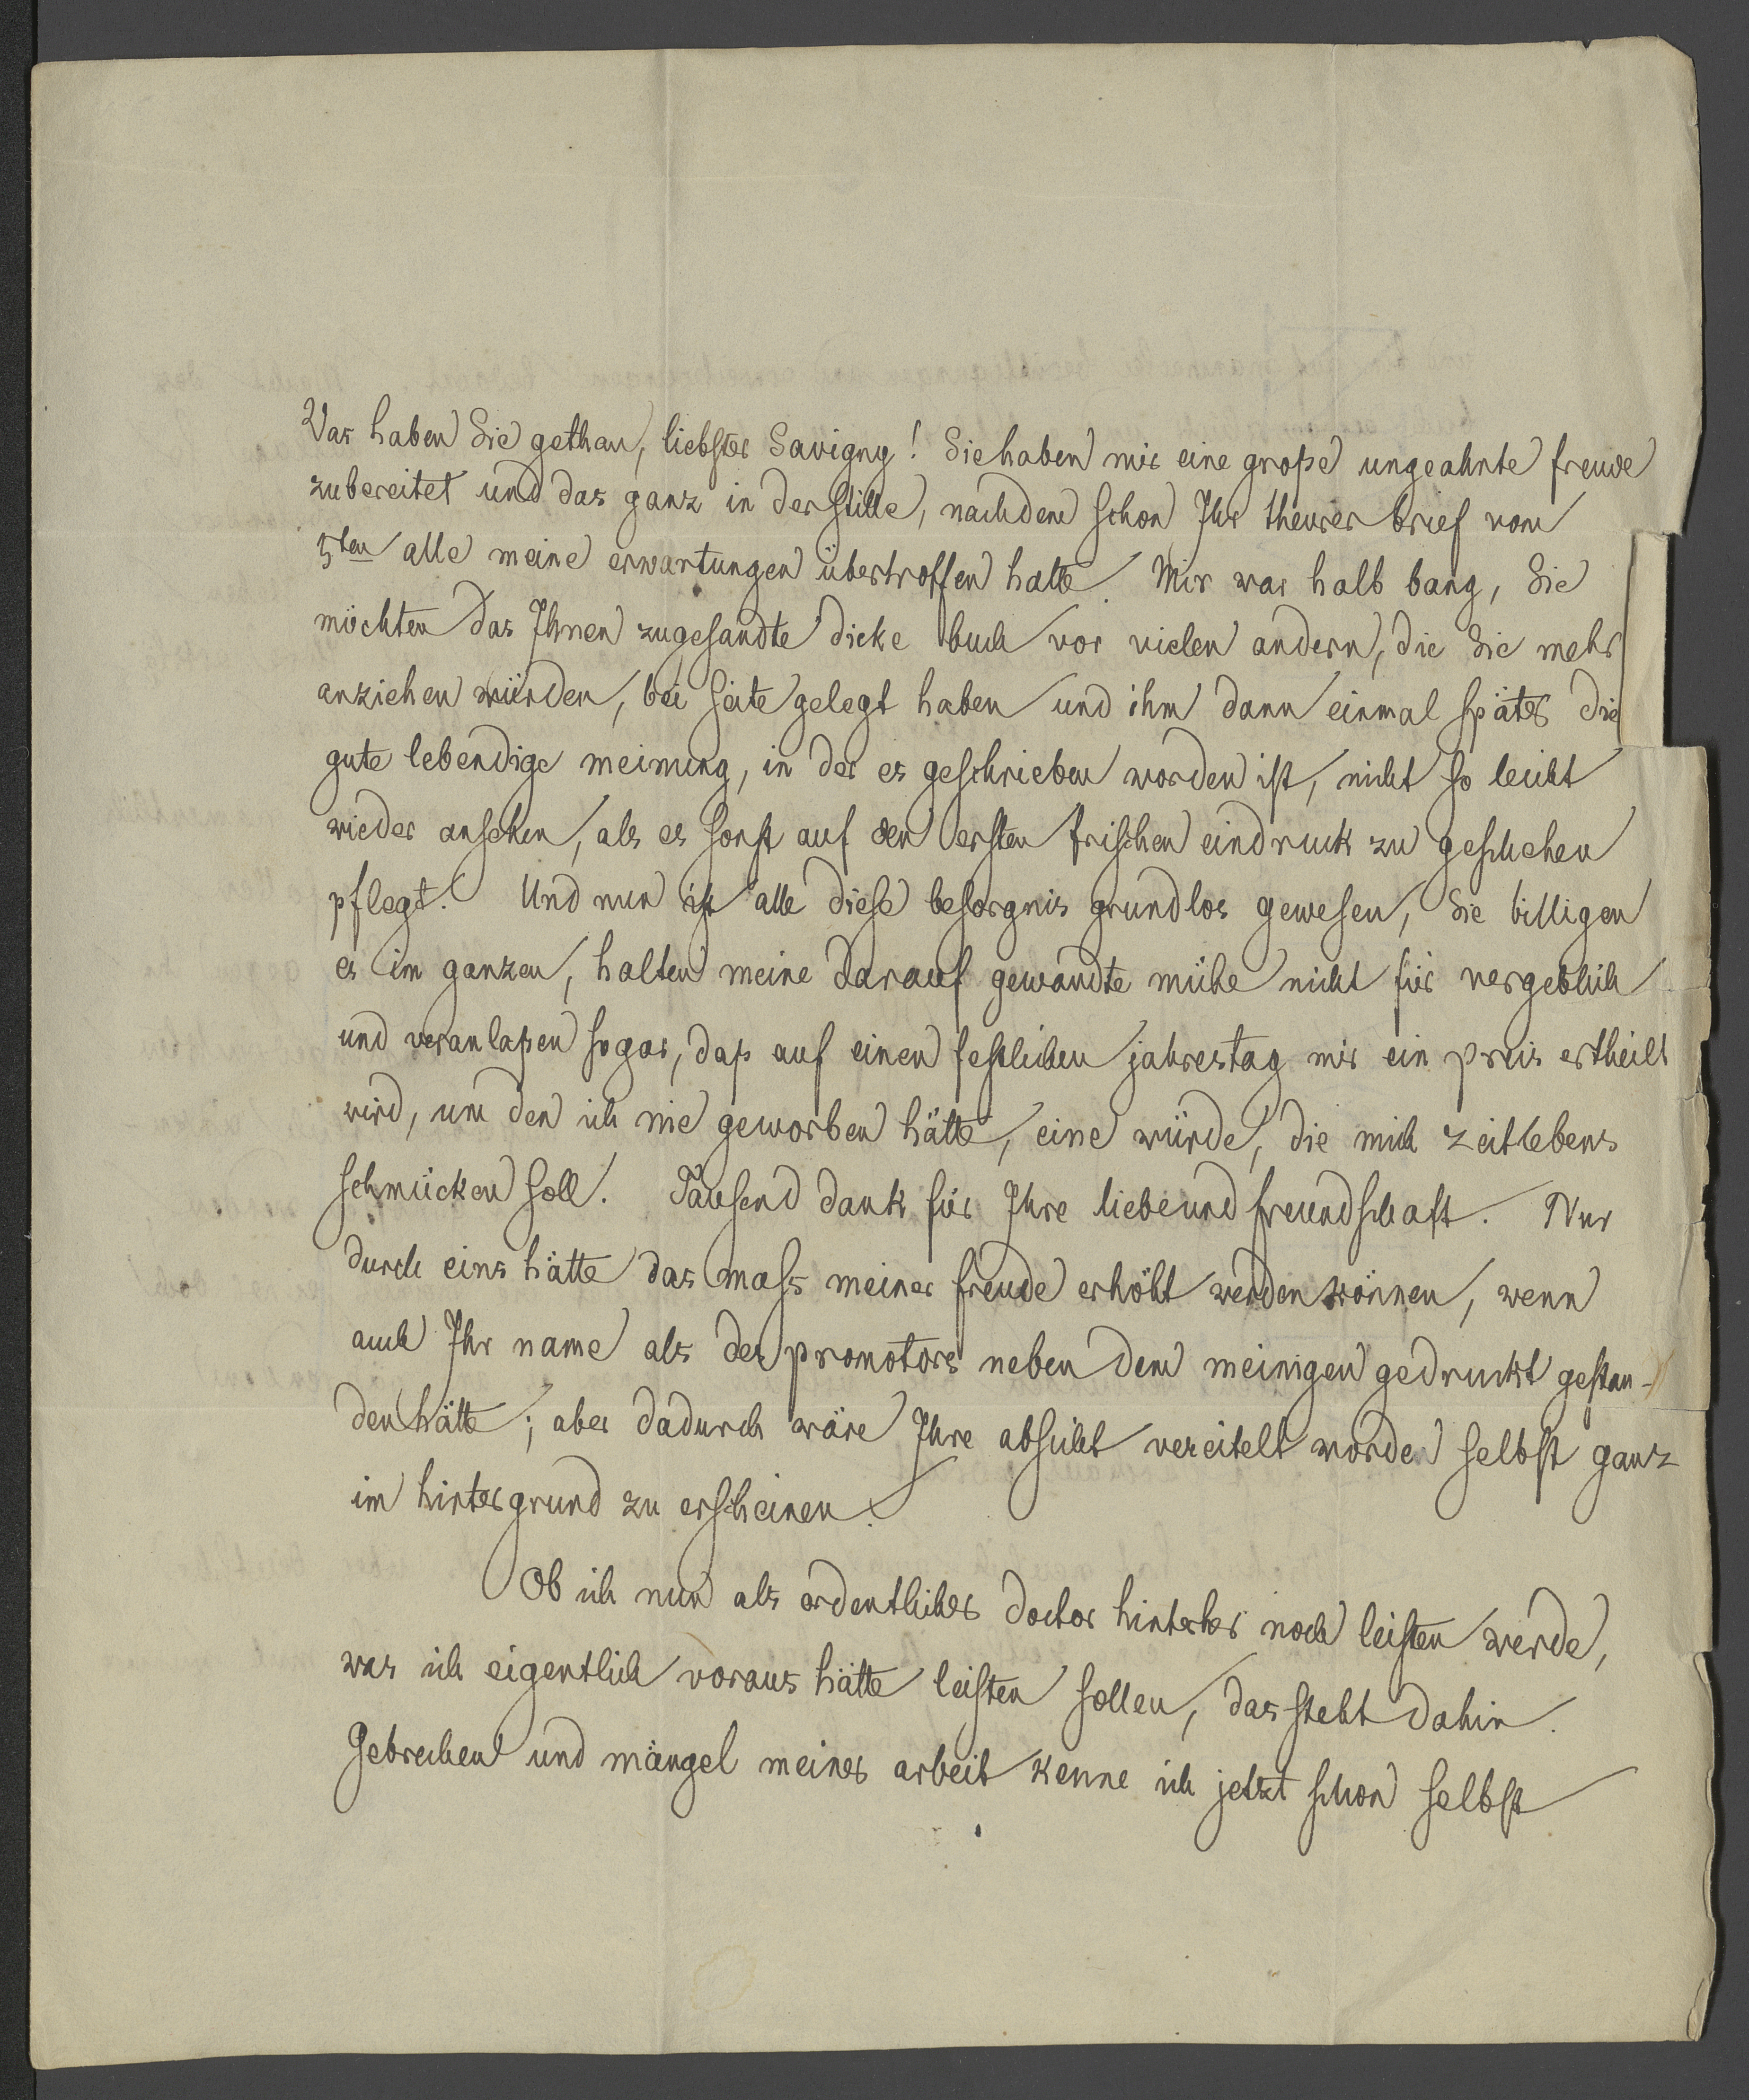 Was haben Sie gethan, liebster Savigny! Sie haben mir eine große ungeahnte freude
zubereitet und das ganz in der stille, nachdem schon Ihr theurer brief vom
5ten alle meine erwartungen übertroffen hatte. Mir war halb bang, Sie
möchten das Ihnen zugesandte dicke buch vor vielen andern, die Sie mehr
anziehen würden, bei seite gelegt haben und ihm dann einmal später die
gute lebendige meinung, in der es geschrieben worden ist, nicht so leicht
wieder ansehen, als es sonst auf den ersten frischen eindruck zu geschehen
pflegt. Und nun ist alle diese besorgnis grundlos gewesen, Sie billigen
es im ganzen, halten meine darauf gewandte mühe nicht für vergeblich
und veranlaßen sogar, daß auf einen festlichen jahrestag mir ein preis ertheilt
wird, um den ich nie geworben hätte, eine würde, die mich zeitlebens
schmücken soll. Tausend dank für Ihre liebe und freundschaft. Nur
durch eins hätte das mass meiner freude erhöht werden können, wenn
auch Ihr name als des promotors neben dem meinigen gedruckt gestan-
den hätte; aber dadurch wäre Ihre absicht vereitelt worden selbst ganz
im hintergrund zu erscheinen.
Ob ich nun als ordentlicher doctor hinterher noch leisten werde,
was ich eigentlich voraus hätte leisten sollen, das steht dahin.
Gebrechen und mängel meiner arbeit kenne ich jetzt schon selbst